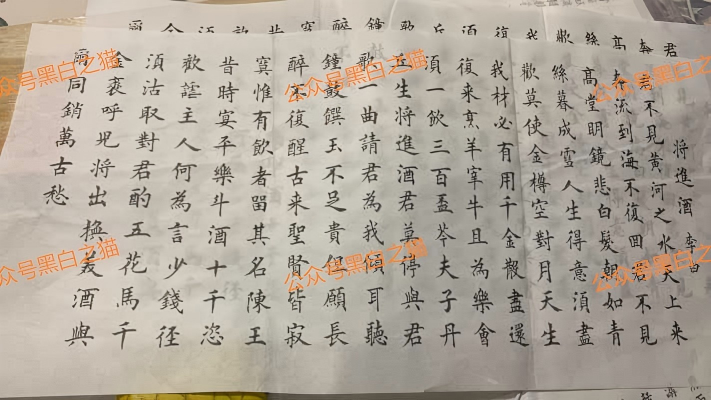 將進酒 李白
君不見黃河之水天上来
奔流到海不復回君不見
高堂明鏡悲白髮朝如青
絲暮成雪人生得意須盡
歡莫使金樽空對月天生
我材必有用千金散盡還
復来烹羊宰牛且為樂會
須一飲三百盃岑夫子丹
丘生將進酒君莫停與君
歌一曲請君為我傾耳聽
鐘鼓饌玉不足貴但願長
醉不復醒古来聖賢皆寂
寞惟有飲者畱其名陳王
昔時宴平樂斗酒十千恣
歡謔主人何為言少錢径
須沽取對君酌五花馬千
金裘呼兒將出換美酒與
爾同銷萬古愁
公众号黑白之猫
公众号黑白之猫
公众号黑白之猫
公众号黑白之猫
公众号黑白之猫
公众号黑白之猫